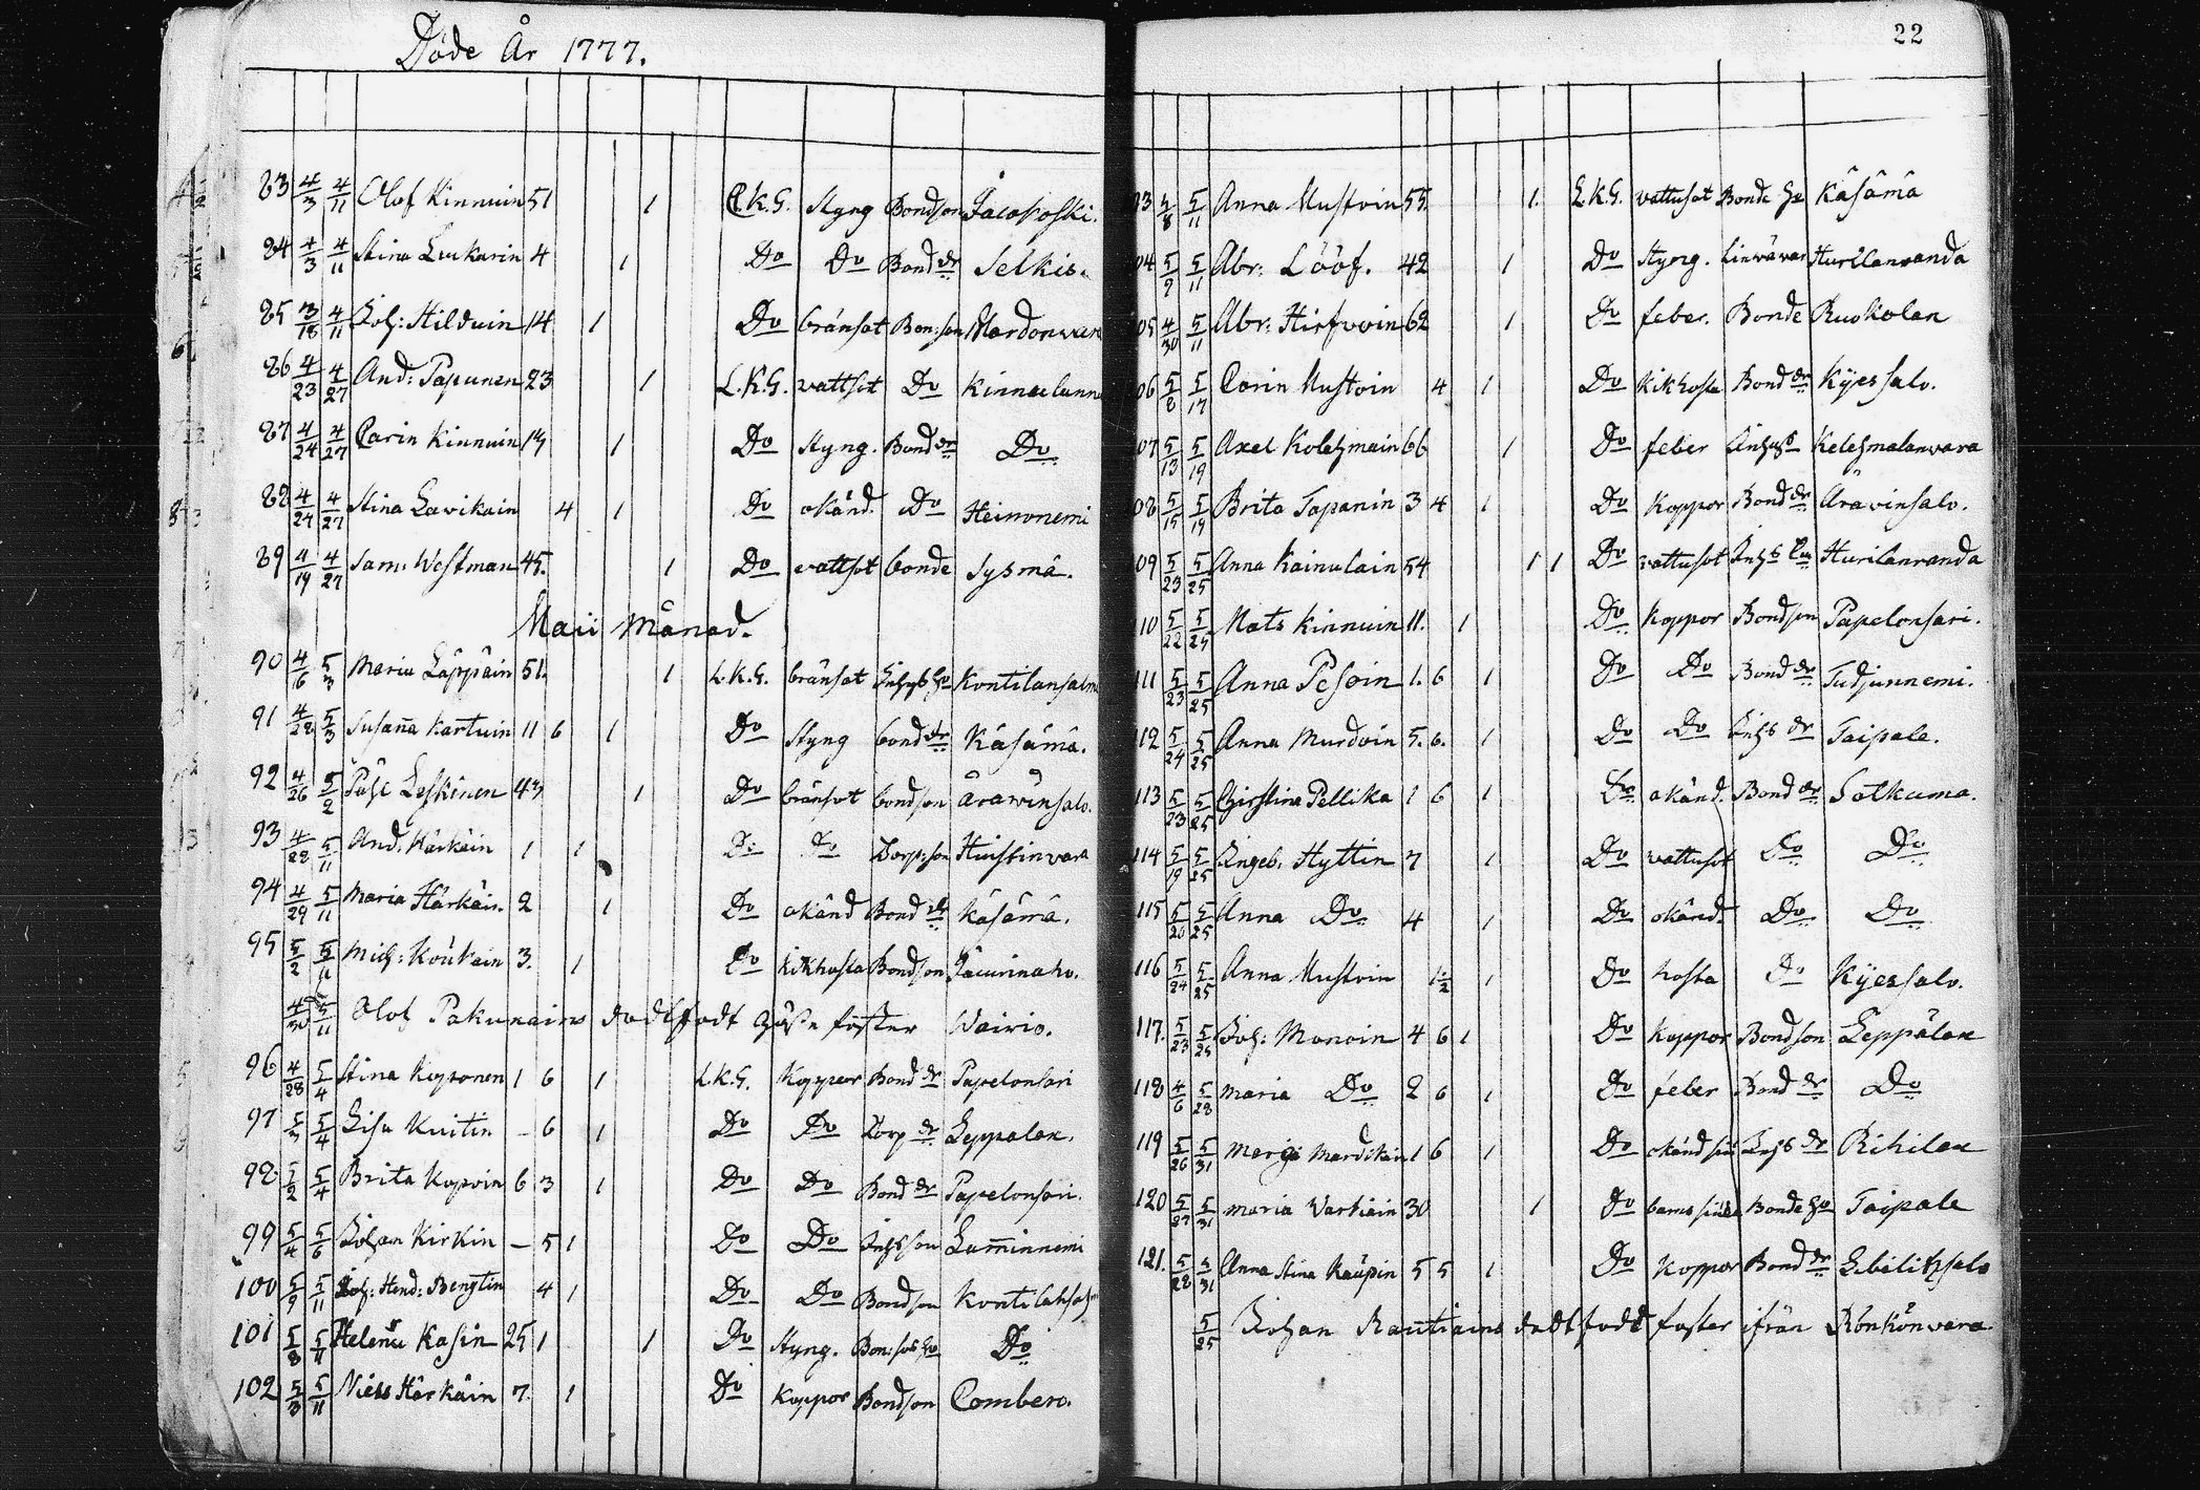 Döde År 1777.
83 4/3 4/11 Olof Kinnuin 51 1 L.K.G. Styng Bondson Jacokoski.
84 4/3 4/11 Stina Luukarin 4 1 Do Do Bond dr Selkis.
85 3/18 4/11 Joh: Hilduin 14 1 Do bränsot Bon:son Mardonvara
86 4/23 4/27 And: Papunen 23 1 L.K.G. vattsot Do Kinnalanni
87 4/24 4/27 Carin Kinnuin 1 Do Styng. Bond dr Do
88 4/24 4/27 Stina Lavikain 4 1 Do okänd. Do Heinonemi
89 4/19 4/27 Sam: Westman 45. 1 Do vattsot bonde Sysmä.
Maii Månad.
90 4/6 5/3 Maria Läppäin 51. 1 L.K.G. bränsot Inhys ho Kontilansalmi
91 4/28 5/3 Susaña Kartuin 11 6 1 Do Styng bond dr Käsämä.
92 4/26 5/2 Påhl Leskinen 43 1 Do bränsot bondson Aräwinsalo.
93 4/28 5/11 And. Härkäin 1 1 Do Do Torp:son Huistinvara
94 4/29 5/11 Maria Härkäin. 2 1 Do okänd Bond dr Käsämä.
95 5/2 5/11 Mich: Koukain 3. 1 Do kikhosta Bondson Jäuurinaho.
4/30 5/11 Olof Pakunains dödfödt foster Wairio.
96 4/28 5/4 Stina Koponen 1 6 1 L.K.G. Koppor Bond dr Papelonsari
97 5/3 5/4 Lisa Kuitin - 6 1 Do Do Torp dr Leppälax.
98. 5/2 5/4 Brita Kopoin 6 3 1 Do Do Bond dr Papelonsari.
99 5/4 5/6 Johan Kirkin - 5 1 Do Do Inhs son Lam̄innemi
100 5/9 5/11 Joh: Hend: Bengtin 4 1 Do Do Bondson Kontilahsalmi
101 5/8 5/11 Helena Kasin 25 1 1 Do Styng. Bon:sos ho Do
102 5/3 5/11 Niels Härkäin 7. 1 Do Koppor Bondson Combero.
22
03 5/8 5/11 Anna Mustoin 55. 1. L.K.G. vattusot Bonde ho Käsämä
04 5/9 5/11 Abr: Lööf. 42 1 Do Styng. Linvävar Hurilanranda
05 4/30 5/11 Abr: Hirfvoin 62 1 Do feber. Bonde Ruokolax
06 5/8 5/17 Carin Mustoin 4 1 Do Kikhosta Bond dr Kÿessalo.
07 5/13 5/19 Axel Kolehmain 66 1 Do feber Kelehmalanvara
08 5/15 5/19 Brita Tapanin 3 4 1 Do Koppor Bond dr Aravinsalo.
09 5/23 5/25 Anna Kainulain 54 1 1 Do vattusot Hurilanranda
10 5/22 5/25 Mats Kinnuin 11. 1 Do Koppor Bondson Papelonsari.
111 5/23 5/25 Anna Pesoin 1. 6 1 Do Do Bond dr Tudjunnemi.
112 5/24 5/25 Anna Murdoin 5. 6. 1 Do Do Inhs dr Taipale.
113 5/23 5/25 Christina Pellika 1 6 1 Do okänd. Bond dr Sotkuma.
114 5/19 5/25 Ingeb. Hyttin 7 1 Do vattusot Do Do
115 5/20 5/25 Anna Do 4 1 Do okänd. Do Do
116 5/24 5/25 Anna Mustoin 1/2 1 Do hosta Do Kÿessalo.
117. 5/23 5/25 Joh: Monoin 4 6 1 Do Koppor Bondson Leppälax
118 4/6 5/28 Maria Do 2 6 1 Do feber Bond dr Do
119 5/26 5/31 Maria Mardikain 1 6 1 Do okänd Inhs dr Rihilax
120 5/27 5/31 Maria Vartiain 30 1 Do barns Bonde ho Taipale
121. 5/28 5/31 Anna Stina Kaupin 5 5 1 Do Koppor Bond dr Libelitzsalo
5/25 Johan Rautiains dödfödt foster ifrån Rönkönvara.